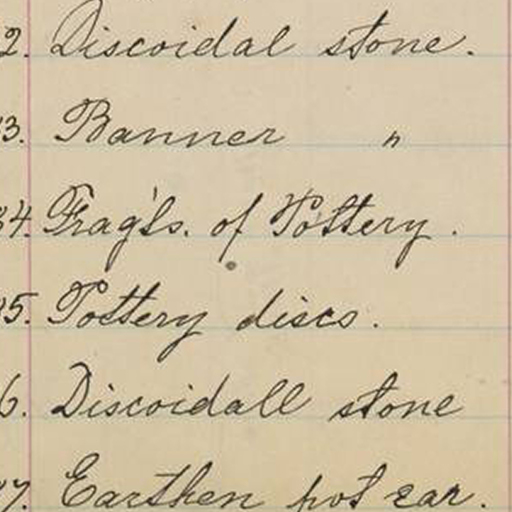 2. Discoidal stone.
3. Banner "
34. Frag'ts. of Pottery.
35. Pottery discs.
6. Discoidall stone
37. Earthen pot ear.